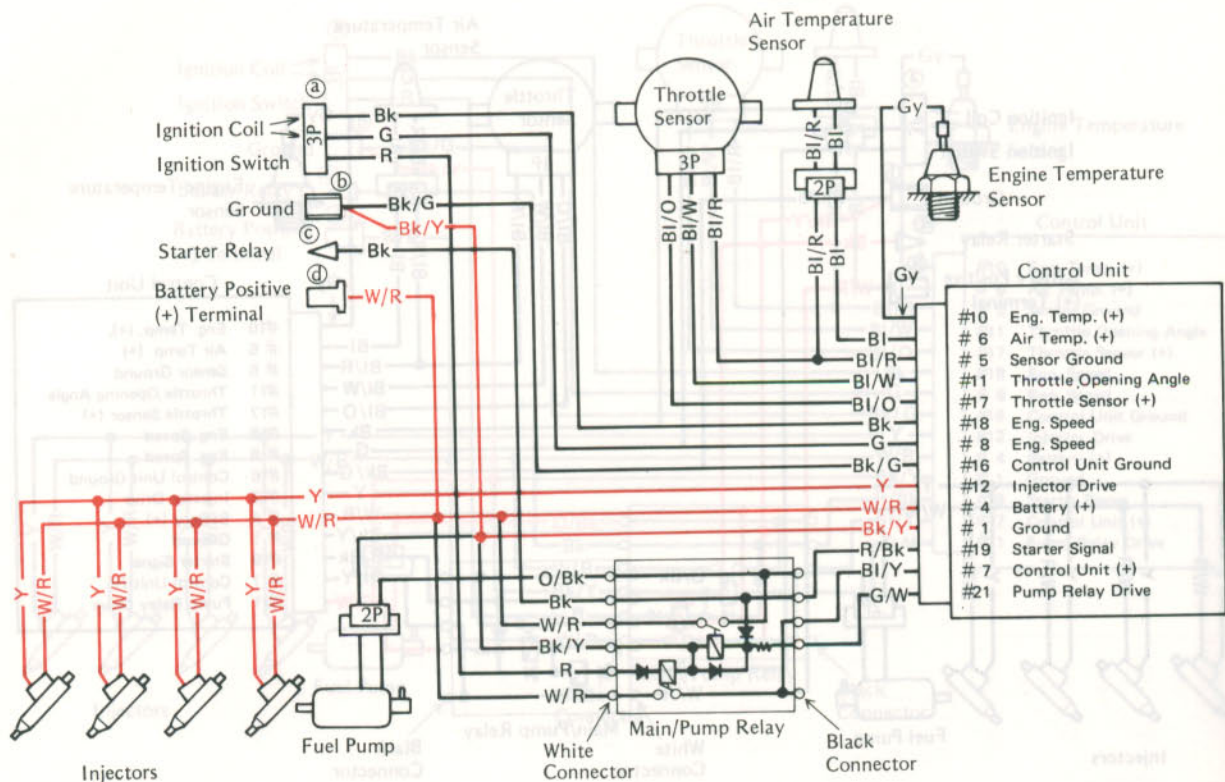 Air Temperature
Sensor
Throttle
Sensor
3P
Bl/R
Bl
2P
Gy
Engine Temperature
Sensor
ⓐ
Ignition Coil
3P
Ignition Switch
Bk
G
R
ⓑ
Ground
Bk/G
Bk/Y
ⓒ
Starter Relay
Bk
ⓓ
Battery Positive
(+) Terminal
W/R
Bl/O
Bl/W
Bl/R
Bl/R
Bl
Gy
Control Unit
#10 Eng. Temp. (+)
Bl # 6 Air Temp. (+)
Bl/R # 5 Sensor Ground
Bl/W #11 Throttle Opening Angle
Bl/O #17 Throttle Sensor (+)
Bk #18 Eng. Speed
G # 8 Eng. Speed
Bk/G #16 Control Unit Ground
Y #12 Injector Drive
W/R # 4 Battery (+)
Bk/Y # 1 Ground
R/Bk #19 Starter Signal
Bl/Y # 7 Control Unit (+)
G/W #21 Pump Relay Drive
Y
W/R
Y
W/R
Y
W/R
Y
W/R
Y
W/R
2P
O/Bk
Bk
W/R
Bk/Y
R
W/R
Injectors
Fuel Pump
White
Connector
Main/Pump Relay
Black
Connector